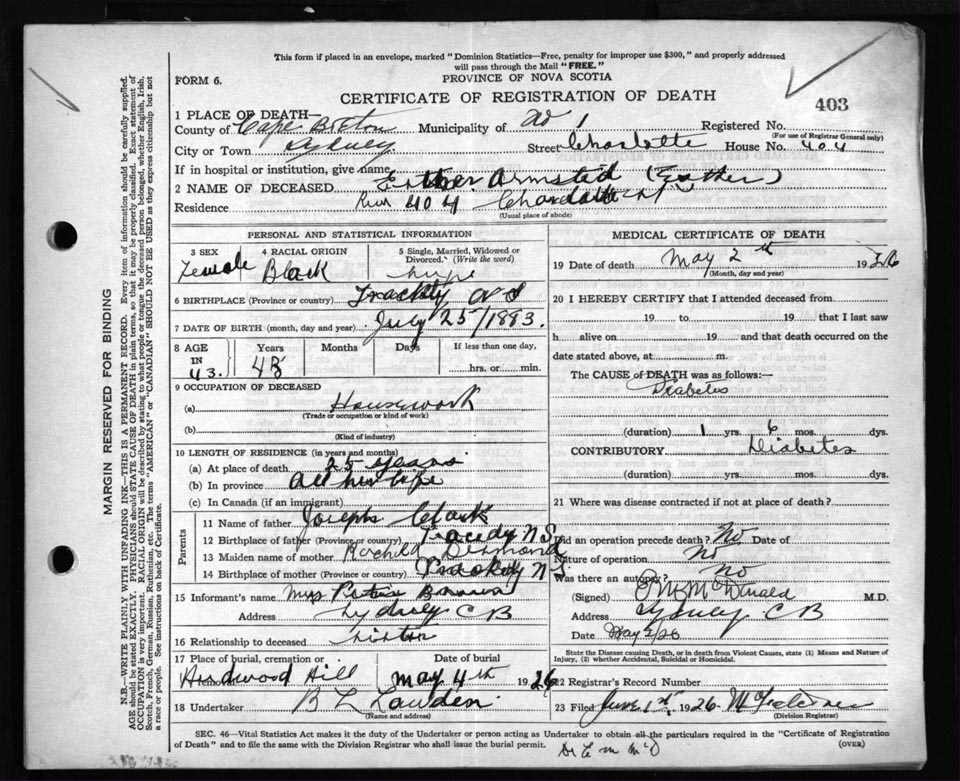 This form if placed in an envelope, marked "Dominion Statistics—Free, penalty for improper use $300," and properly addressed
will pass through the Mail "FREE."
FORM 6.
PROVINCE OF NOVA SCOTIA
CERTIFICATE OF REGISTRATION OF DEATH
403
1 PLACE OF DEATH—
County of Cape Breton Municipality of Registered No.
(For use of Registrar General only)
City or Town Sydney Street Charlotte House No. 404
If in hospital or institution, give name
2 NAME OF DECEASED Esther Armstad (Esther)
Residence 404 Charlotte St
(Usual place of abode)
PERSONAL AND STATISTICAL INFORMATION
3 SEX Female
4 RACIAL ORIGIN Black
5 Single, Married, Widowed or Divorced. (Write the word)
6 BIRTHPLACE (Province or country) N S
7 DATE OF BIRTH (month, day and year) July 25/1883.
8 AGE IN 43. Years 43 Months Days If less than one day, hrs. or min.
9 OCCUPATION OF DECEASED
(a) Housework
(Trade or occupation or kind of work)
(b)
(Kind of industry)
10 LENGTH OF RESIDENCE (in years and months)
(a) At place of death 25 years
(b) In province All her life
(c) In Canada (if an immigrant)
Parents
11 Name of father Joseph Clark
12 Birthplace of father (Province or country) Tracedy N S
13 Maiden name of mother Desmond
14 Birthplace of mother (Province or country) N S
15 Informant's name Mrs
Address Sydney C B
16 Relationship to deceased
17 Place of burial, cremation or removal Hardwood Hill
Date of burial May 4th 1926
18 Undertaker B L
(Name and address)
MEDICAL CERTIFICATE OF DEATH
19 Date of death May 2nd 1926
(Month, day and year)
20 I HEREBY CERTIFY that I attended deceased from
19 to 19 that I last saw
h alive on 19 and that death occurred on the
date stated above, at m.
The CAUSE of DEATH was as follows:—
Diabetes
(duration) 1 yrs. 6 mos. dys.
CONTRIBUTORY Diabetes
(duration) yrs. mos. dys.
21 Where was disease contracted if not at place of death?
Did an operation precede death? No Date of
Nature of operation No
Was there an autopsy? No
(Signed) McDonald M.D.
Address Sydney C B
Date May 2/26
State the Disease causing Death, or in death from Violent Causes, state (1) Means and Nature of
Injury, (2) whether Accidental, Suicidal or Homicidal.
22 Registrar's Record Number
23 Filed June 1st 1926
(Division Registrar)
SEC. 46—Vital Statistics Act makes it the duty of the Undertaker or person acting as Undertaker to obtain all the particulars required in the "Certificate of Registration
of Death" and to file the same with the Division Registrar who shall issue the burial permit.
(OVER)
MARGIN RESERVED FOR BINDING
N.B.—WRITE PLAINLY WITH UNFADING INK—THIS IS A PERMANENT RECORD. Every item of information should be carefully supplied.
AGE should be stated EXACTLY. PHYSICIANS should STATE CAUSE OF DEATH in plain terms, so that it may be properly classified. Exact statement of
OCCUPATION is very important. RACIAL ORIGIN will be described by stating to what people or tongue the deceased person belonged, whether English, Irish,
Scotch, French, German, Russian, Ruthenian, etc. The terms "AMERICAN" or "CANADIAN" SHOULD NOT BE USED as they express citizenship but not
a race or people. See instructions on back of Certificate.